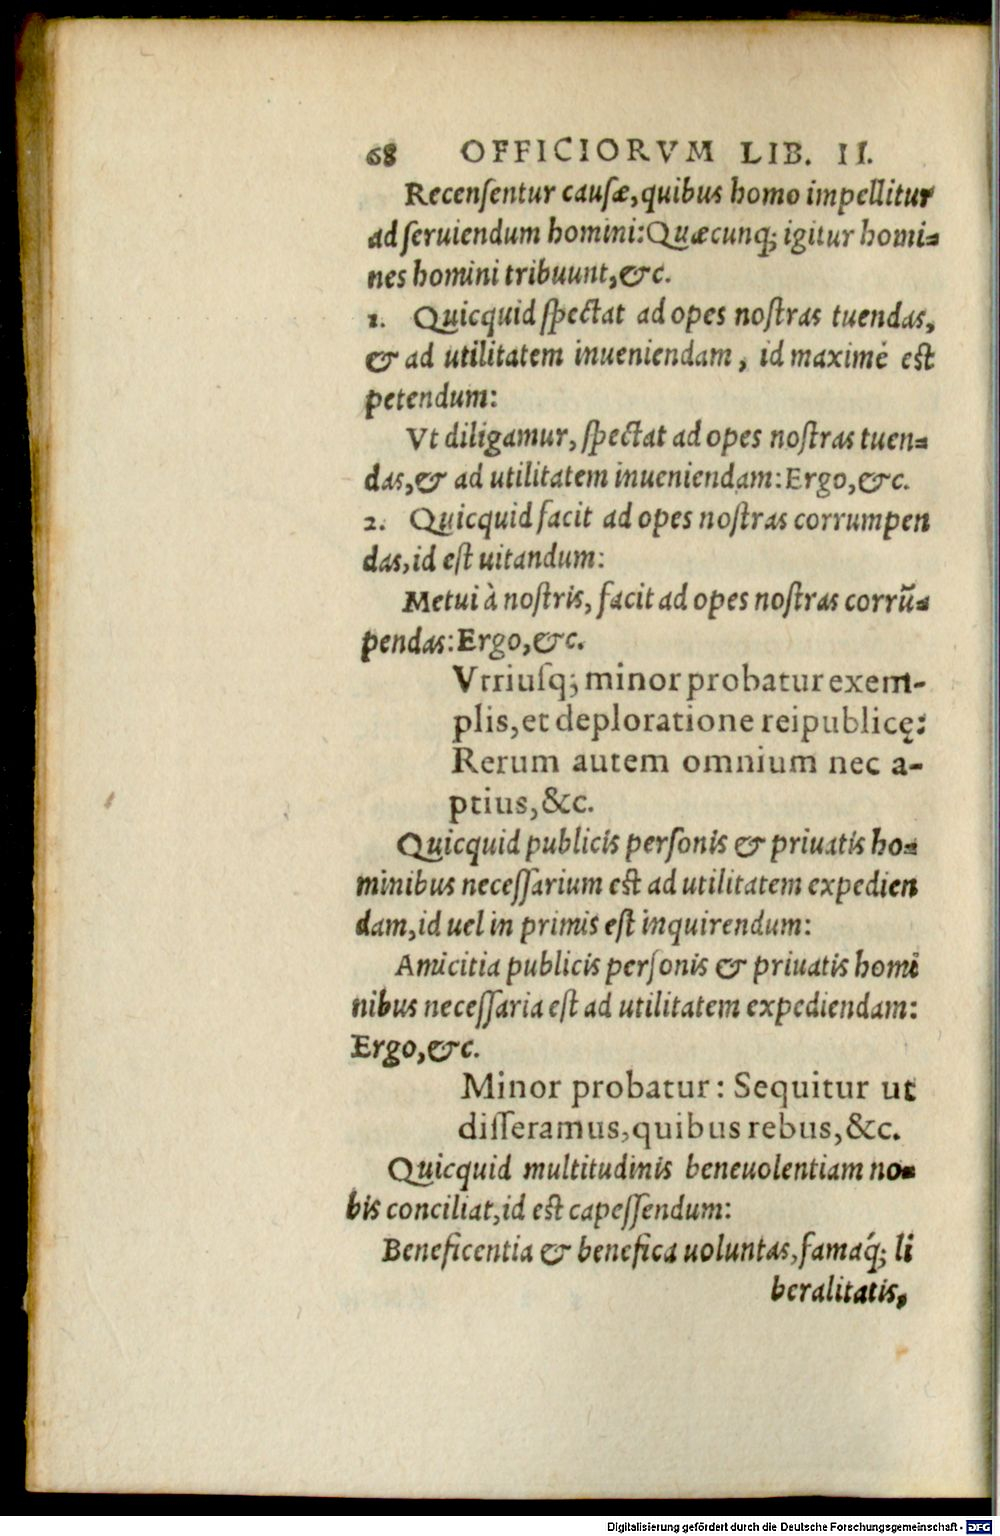 68 OFFICIORVM LIB. II.
Recenſentur cauſæ, quibus homo impellitur
ad ſeruiendum homini: Quæcunq; igitur homi-
nes homini tribuunt, &c.
1. Quicquid ſpectat ad opes noſtras tuendas,
& ad utilitatem inueniendam, id maximè est
petendum:
Vt diligamur, ſpectat ad opes noſtras tuen-
das, & ad utilitatem inueniendam: Ergo, &c.
2. Quicquid facit ad opes noſtras corrumpen
das, id eſt uitandum:
Metui à noſtris, facit ad opes noſtras corrũ-
pendas: Ergo, &c.
Vtriuſq; minor probatur exem-
plis, et deploratione reipublicę:
Rerum autem omnium nec a-
ptius, &c.
Quicquid publicis perſonis & priuatis ho-
minibus neceſſarium est ad utilitatem expedien
dam, id uel in primis eſt inquirendum:
Amicitia publicis perſonis & priuatis homi
nibus neceſſaria eſt ad utilitatem expediendam:
Ergo, &c.
Minor probatur: Sequitur ut
diſſeramus, quibus rebus, &c.
Quicquid multitudinis beneuolentiam no-
bis conciliat, id est capeſſendum:
Beneficentia & benefica uoluntas, famaq́; li
beralitatis,
Digitalisierung gefördert durch die Deutsche Forschungsgemeinschaft - DFG